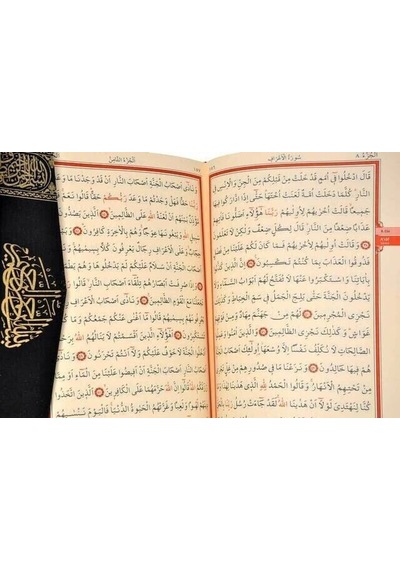 الجزء ٨
سورة الأعراف
قَالَ ادْخُلُوا فِي أُمَمٍ قَدْ خَلَتْ مِنْ قَبْلِكُمْ مِنَ الْجِنِّ وَالْإِنْسِ فِي
النَّارِ كُلَّمَا دَخَلَتْ أُمَّةٌ لَعَنَتْ أُخْتَهَا حَتَّى إِذَا ادَّارَكُوا فِيهَا
جَمِيعًا قَالَتْ أُخْرٰيهُمْ لِأُولٰيهُمْ رَبَّنَا هٰؤُلَاءِ أَضَلُّونَا فَآتِهِمْ
عَذَابًا ضِعْفًا مِنَ النَّارِ قَالَ لِكُلٍّ ضِعْفٌ وَلٰكِنْ لَا تَعْلَمُونَ
وَقَالَتْ أُولٰيهُمْ لِأُخْرٰيهُمْ فَمَا كَانَ لَكُمْ عَلَيْنَا مِنْ فَضْلٍ
فَذُوقُوا الْعَذَابَ بِمَا كُنْتُمْ تَكْسِبُونَ إِنَّ الَّذِينَ كَذَّبُوا
بِآيَاتِنَا وَاسْتَكْبَرُوا عَنْهَا لَا تُفَتَّحُ لَهُمْ أَبْوَابُ السَّمَاءِ وَلَا
يَدْخُلُونَ الْجَنَّةَ حَتَّى يَلِجَ الْجَمَلُ فِي سَمِّ الْخِيَاطِ وَكَذٰلِكَ
نَجْزِي الْمُجْرِمِينَ لَهُمْ مِنْ جَهَنَّمَ مِهَادٌ وَمِنْ فَوْقِهِمْ
غَوَاشٍ وَكَذٰلِكَ نَجْزِي الظَّالِمِينَ وَالَّذِينَ آمَنُوا وَعَمِلُوا
الصَّالِحَاتِ لَا نُكَلِّفُ نَفْسًا إِلَّا وُسْعَهَا أُولٰئِكَ أَصْحَابُ الْجَنَّةِ
هُمْ فِيهَا خَالِدُونَ وَنَزَعْنَا مَا فِي صُدُورِهِمْ مِنْ غِلٍّ تَجْرِي
مِنْ تَحْتِهِمُ الْأَنْهَارُ وَقَالُوا الْحَمْدُ لِلّٰهِ الَّذِي هَدٰينَا لِهٰذَا وَمَا
كُنَّا لِنَهْتَدِيَ لَوْلَا أَنْ هَدٰينَا اللّٰهُ لَقَدْ جَاءَتْ رُسُلُ رَبِّنَا
الجزء الثامن
وَنَادٰى أَصْحَابُ الْجَنَّةِ أَصْحَابَ النَّارِ أَنْ قَدْ وَجَدْنَا مَا
وَعَدَنَا رَبُّنَا حَقًّا فَهَلْ وَجَدْتُمْ مَا وَعَدَ رَبُّكُمْ حَقًّا قَالُوا نَعَمْ
فَأَذَّنَ مُؤَذِّنٌ بَيْنَهُمْ أَنْ لَعْنَةُ اللّٰهِ عَلَى الظَّالِمِينَ الَّذِينَ
يَصُدُّونَ عَنْ سَبِيلِ اللّٰهِ وَيَبْغُونَهَا عِوَجًا وَهُمْ بِالْآخِرَةِ كَافِرُونَ
وَبَيْنَهُمَا حِجَابٌ وَعَلَى الْأَعْرَافِ رِجَالٌ يَعْرِفُونَ كُلًّا بِسِيمٰيهُمْ
وَنَادَوْا أَصْحَابَ الْجَنَّةِ أَنْ سَلَامٌ عَلَيْكُمْ لَمْ يَدْخُلُوهَا وَهُمْ
يَطْمَعُونَ وَإِذَا صُرِفَتْ أَبْصَارُهُمْ تِلْقَاءَ أَصْحَابِ النَّارِ قَالُوا
رَبَّنَا لَا تَجْعَلْنَا مَعَ الْقَوْمِ الظَّالِمِينَ وَنَادٰى أَصْحَابُ الْأَعْرَافِ
رِجَالًا يَعْرِفُونَهُمْ بِسِيمٰيهُمْ قَالُوا مَا أَغْنٰى عَنْكُمْ جَمْعُكُمْ وَمَا
كُنْتُمْ تَسْتَكْبِرُونَ أَهٰؤُلَاءِ الَّذِينَ أَقْسَمْتُمْ لَا يَنَالُهُمُ اللّٰهُ
بِرَحْمَةٍ ادْخُلُوا الْجَنَّةَ لَا خَوْفٌ عَلَيْكُمْ وَلَا أَنْتُمْ تَحْزَنُونَ وَنَادٰى
أَصْحَابُ النَّارِ أَصْحَابَ الْجَنَّةِ أَنْ أَفِيضُوا عَلَيْنَا مِنَ الْمَاءِ أَوْ مِمَّا
رَزَقَكُمُ اللّٰهُ قَالُوا إِنَّ اللّٰهَ حَرَّمَهُمَا عَلَى الْكَافِرِينَ الَّذِينَ اتَّخَذُوا
دِينَهُمْ لَهْوًا وَلَعِبًا وَغَرَّتْهُمُ الْحَيٰوةُ الدُّنْيَا فَالْيَوْمَ نَنْسٰيهُمْ